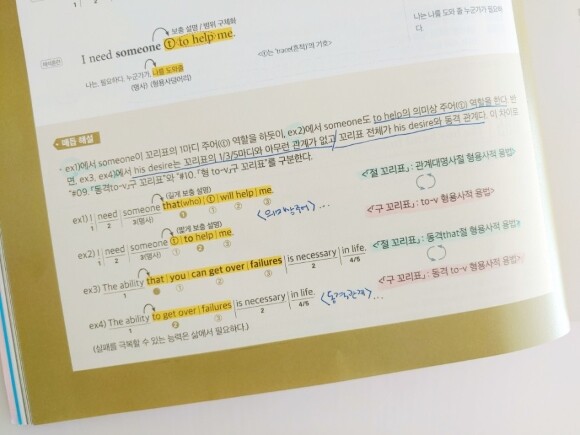 보충 설명 / 범위 구체화
I need someone ⓣ to help me.
나는, 필요하다. 누군가가, 나를 도와줄
(명사) (형용사덩어리)
<ⓣ는 'trace(흔적)'의 기호>
나는 나를 도와 줄 누군가가 필요하
다.
매듭 해설
ex1)에서 someone이 꼬리표의 1마디 주어(ⓣ) 역할을 하듯이, ex2)에서 someone도 to help의 의미상 주어(ⓣ) 역할을 한다. 반
면, ex3, ex4)에서 his desire는 꼬리표의 1/3/5마디와 아무런 관계가 없고 꼬리표 전체가 his desire와 동격 관계다. 이 차이로
"#09. 「동격to-v」구 꼬리표"와 "#10. 「형 to-v」구 꼬리표"를 구분한다.
(길게 보충 설명)
ex1) I need someone that(who) ⓣ will help me.
1 2 3(명사) ① ① ② ③
<의미상주어> ...
<「절 꼬리표」: 관계대명사절 형용사적 용법>
(짧게 보충 설명)
ex2) I need someone ⓣ to help me.
1 2 3(명사) ① ② ③
<「구 꼬리표」: to-v 형용사적 용법>
ex3) The ability that you can get over failures is necessary in life.
1 ⓪ ① ② ③ 2 4/5
<「절 꼬리표」: 동격that절 형용사적 용법>
ex4) The ability to get over failures is necessary in life.
1 ② ③ 2 4/5
<동격관계> ...
<「구 꼬리표」: 동격 to-v 형용사적 용법>
(실패를 극복할 수 있는 능력은 삶에서 필요하다.)